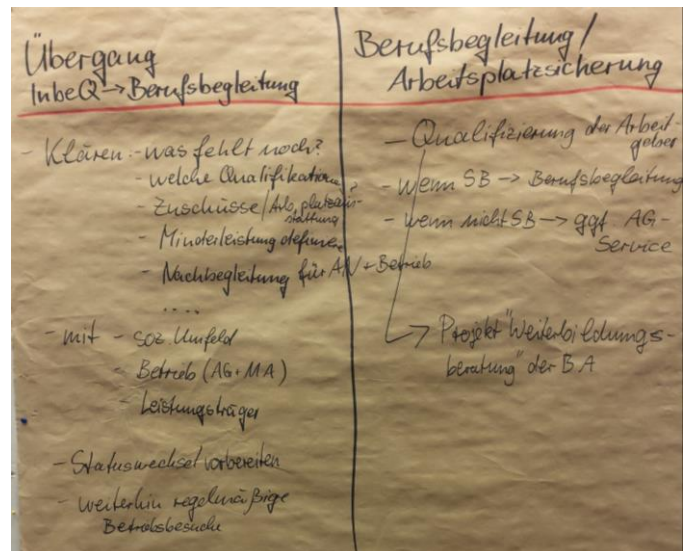 Übergang
InbeQ → Berufsbegleitung
- Klären - was fehlt noch?
- welche Qualifikation?
- Zuschüsse / Arb.platzaus-
stattung
- Minderleistung definieren
- Nachbegleitung für AN + Betrieb
....
- mit - soz. Umfeld
- Betrieb (AG + MA)
- Leistungsträger
- Statuswechsel vorbereiten
- weiterhin regelmäßige
Betriebsbesuche
Berufsbegleitung /
Arbeitsplatzsicherung
- Qualifizierung der Arbeit-
geber
- wenn SB → Berufsbegleitung
- wenn nicht SB → ggf AG-
Service
→ Projekt "Weiterbildungs-
beratung" der BA